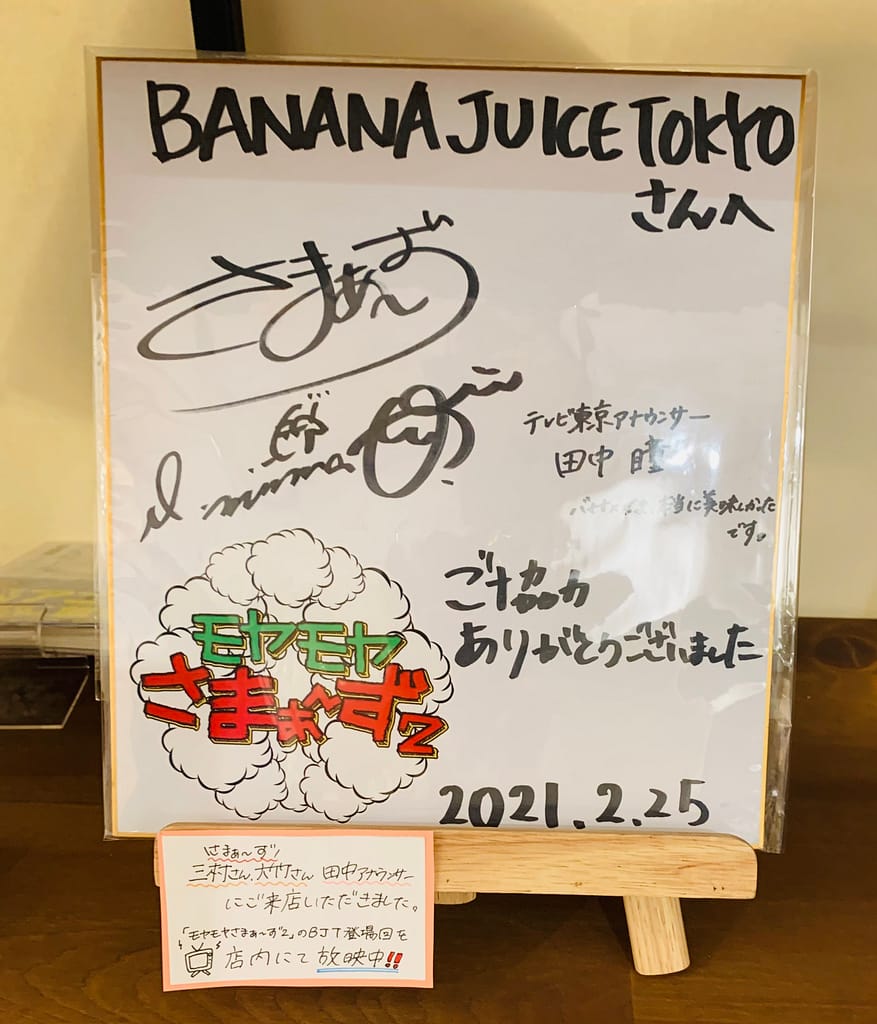 BANANA JUICE TOKYO
さんへ
さまぁ〜ず
テレビ東京アナウンサー
田中 瞳
本当に美味しかった
です。
ご協力
ありがとうございました
モヤモヤ
さまぁ〜ず2
2021.2.25
さまぁ〜ず
三村さん、大竹さん 田中アナウンサー
にご来店いただきました。
「モヤモヤさまぁ〜ず2」のBJT登場回を
店内にて放映中!!